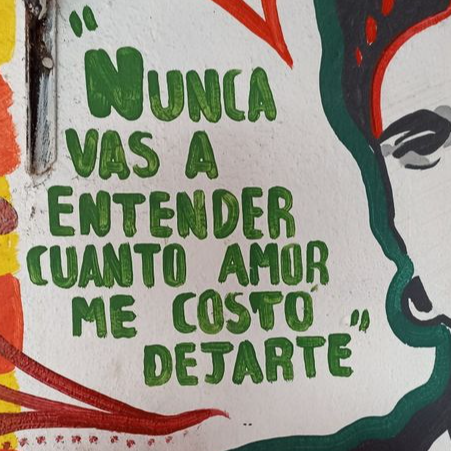 "NUNCA
VAS A
ENTENDER
CUANTO AMOR
ME COSTÓ
DEJARTE"